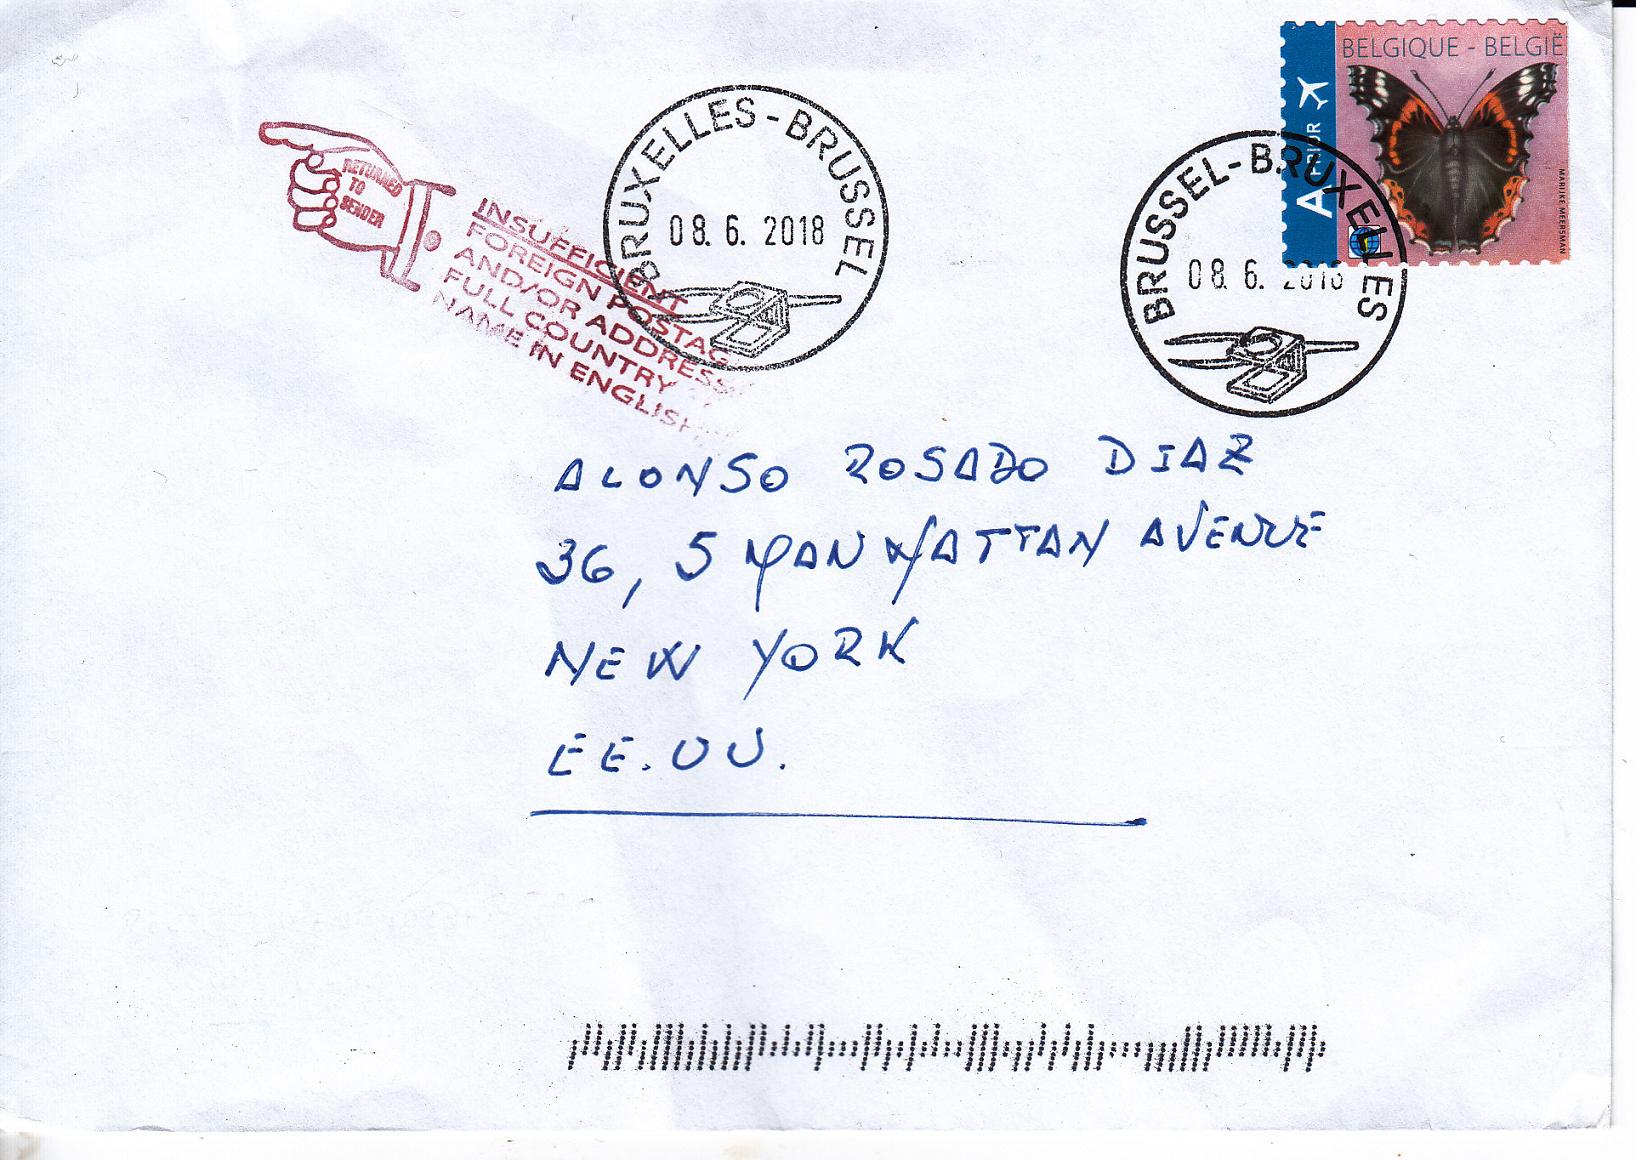 BELGIQUE - BELGIË
A PRIOR
MARIJKE MEERSMAN
BRUXELLES - BRUSSEL
08. 6. 2018
BRUSSEL - BRUXELLES
08. 6. 2018
RETURNED
TO
SENDER
INSUFFICIENT
FOREIGN POSTAG
AND/OR ADDRESS
FULL COUNTRY
NAME IN ENGLISH
ALONSO ROSADO DIAZ
36, 5 MANHATTAN AVENUE
NEW YORK
EE.UU.